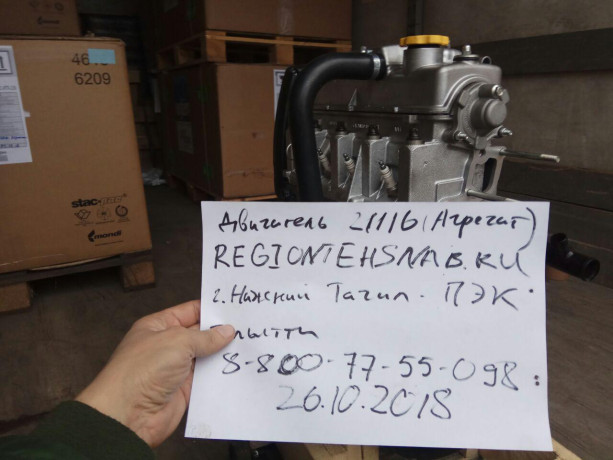 46
6209
stac-one
mondi
mondi
Двигатель 21116 (Агрегат)
REGIONTEHSNAB.RU
г. Нижний Тагил. ПЭК
8-800-77-55-098
26.10.2018